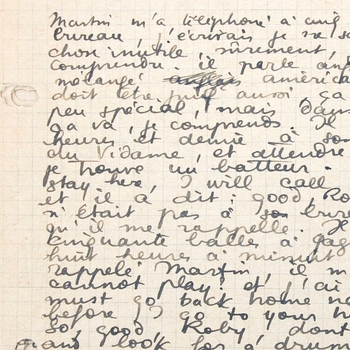 Martin m'a téléphoné à cinq
bureau, j'écrivais je ne sa
chose inutile, sûrement,
comprendre. il parle an
mélangé américa
doit être juif aussi ça
peu spécial, mais dans
ça va, je comprends. Il
heures et demie à so
du Vidame, et attendre
je trouve un batteur.
stay here, I will call
et il a dit: good, Ro
n'était pas à son bure
qu'il me rappelle. Je
cinquante balles à gag
huit heures à minuit
rappelé Martin, il m
cannot play! et j'ai
must go back home n
before I go to your h
so, good, Roby, dont
and look for a drum